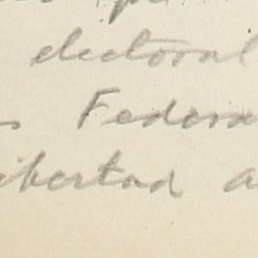 electoral
Federa
ibertad a